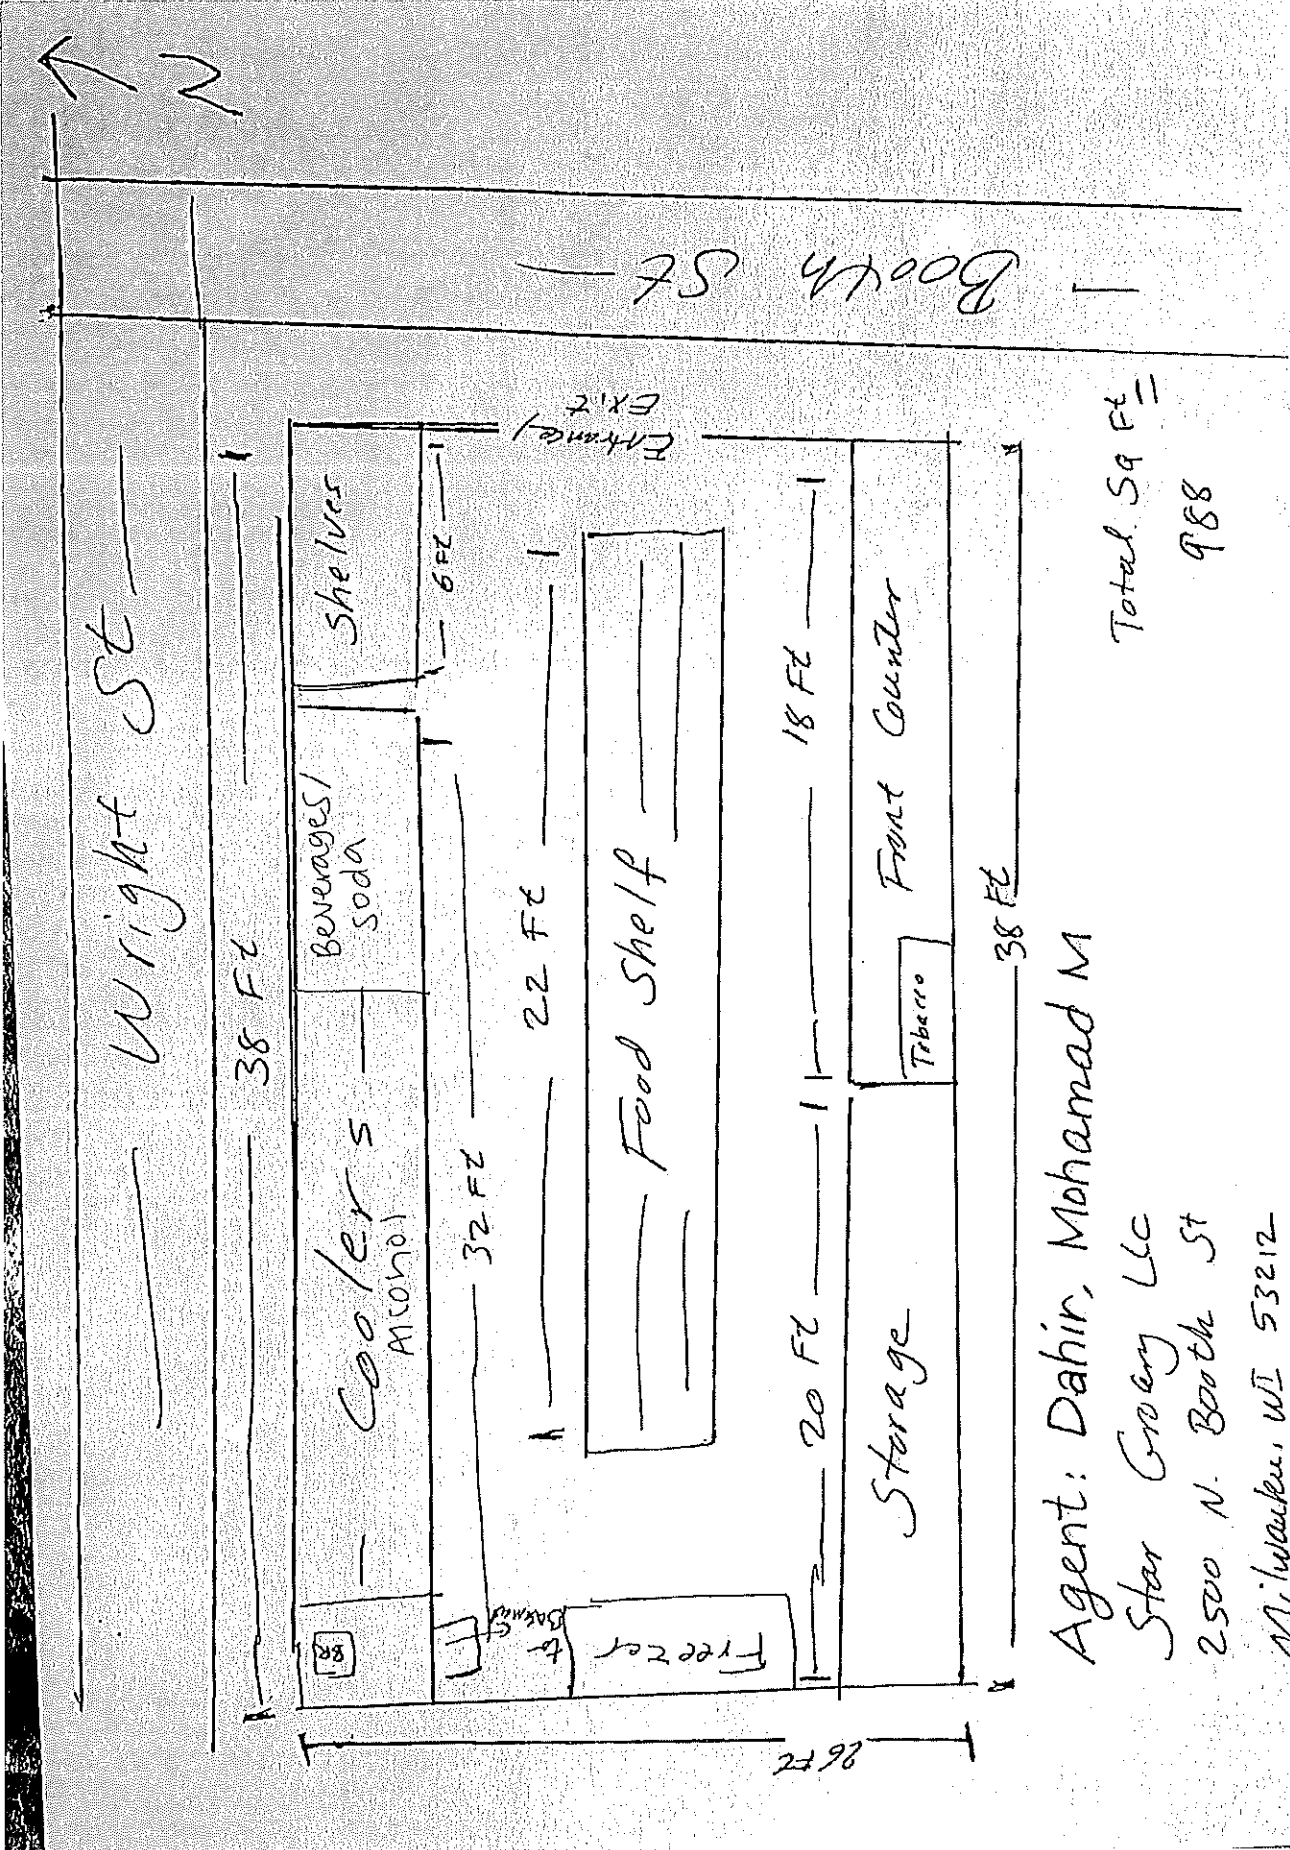 N
Wright St
Booth St
38 Ft
Shelves
Beverages/
Soda
Coolers
Alcohol
BR
6 Ft
32 Ft
Entrance/
Exit
22 Ft
Food Shelf
to
Freezer
18 Ft
20 Ft
Front Counter
Tobacco
Storage
26 Ft
38 Ft
Total Sq Ft =
988
Agent: Dahir, Mohamad M
Star Grocery LLC
2500 N. Booth St
Milwaukee, WI 53212